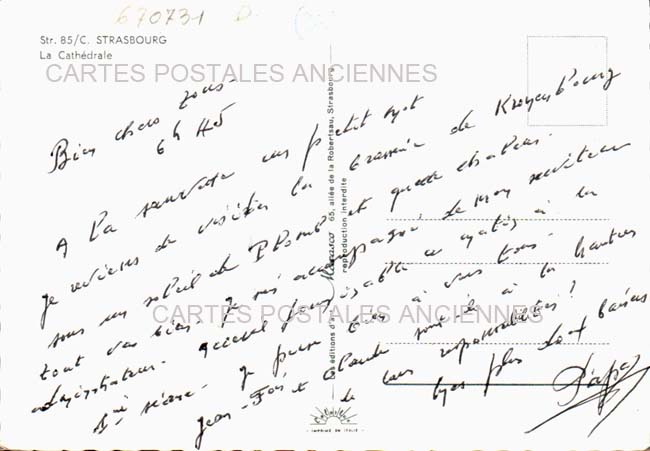 670731 D
Str. 85/C. STRASBOURG
La Cathédrale
CARTES POSTALES ANCIENNES
Bien chers vous -
6h 45
A la sauvette un petit mot
je reviens de visiter la brasserie de Kronenbourg
sous un soleil de Plomb et quelle chaleur.
tout va bien. Je suis accompagné de mon
administrateur. à la
1ère séance. je pense bien à vous tous.
Jean- et Claude sont-ils à la hauteur
de leurs responsabilités?
Mes plus doux baisers
Papa
CARTES POSTALES ANCIENNES
Les éditions d'art 65, allée de la Robertsau, Strasbourg
reproduction interdite
- IMPRIMÉ EN ITALIE -